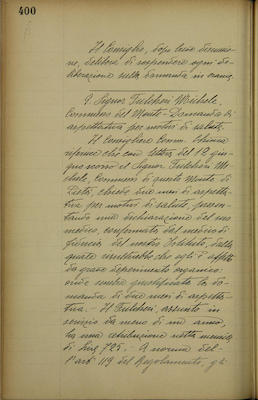 400
Il Consiglio, dopo breve discussio-
ne, delibera di sospendere ogni de-
liberazione sulla domanda in esame.
9. Signor Fulcheri Michele,
Commesso del Monte - Domanda di
aspettativa per motivi di salute.
Il Consigliere Comm.
riferisce che con lettera del 12 giu-
gno scorso il Signor Fulcheri Mi-
chele, Commesso di questo Monte di
Pietà, chiede due mesi di aspetta-
tiva per motivi di salute, presen-
tando una dichiarazione del suo
medico, confermata dal medico di
fiducia del nostro Istituto, dalla
quale risulterebbe che egli è affetto
da grave deperimento organico:
onde sembra giustificata la do-
manda di due mesi di aspetta-
tiva. - Il Fulcheri, assunto in
servizio da meno di un anno,
ha una retribuzione netta mensile
di Lire 725. - A norma del-
l'art. 119 del Regolamento, gli